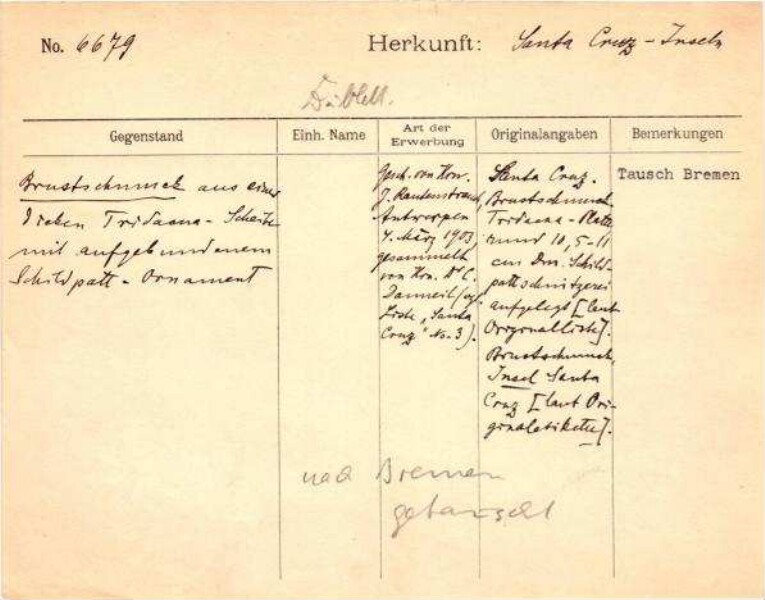 No. 6679 Herkunft: Santa Cruz-Inseln
Dublett.
Gegenstand
Einh. Name
Art der
Erwerbung
Originalangaben
Bemerkungen
Brustschmuck aus einer
dicken Tridacna-Scheibe
mit aufgebundenem
Schildpatt-Ornament
Gesch. von Hrn.
J. Rautenstrauch,
Antwerpen
4. März 1903,
gesammelt
von Hrn. Dr C.
Danneil (cf.
Liste „Santa
Cruz" No. 3).
Santa Cruz.
Brustschmuck
Tridacna-Platte
rund 10,5-11
cm Dm. Schild-
pattschnitzerei
aufgelegt [laut
Originalliste].
Brustschmuck,
Insel Santa
Cruz [laut Ori-
ginaletikette].
Tausch Bremen
nach Bremen
getauscht